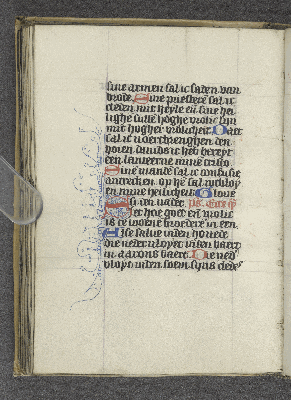 sine armen sal ic saden van
brode Sine priestere sal ic
cleden mit heyle en̄ sine hei
lighe sulle hoghe vrolic sijn
mit hogher vrolicheit Daer
sal ic voertbrenghen den
horen dauids ic heb bereyt
een lanteerne mine cristo
Sine viande sal ic
en mine heilicheit Glorie
si den vader ps. Ecce q̄
Siet hoe goet en̄ vrolic
is te wonen broedere in een
Alse salue inden hoofde
die neder vloyet inden baert
in aarons baert Die ned
vloyt inden soem sijns cleets